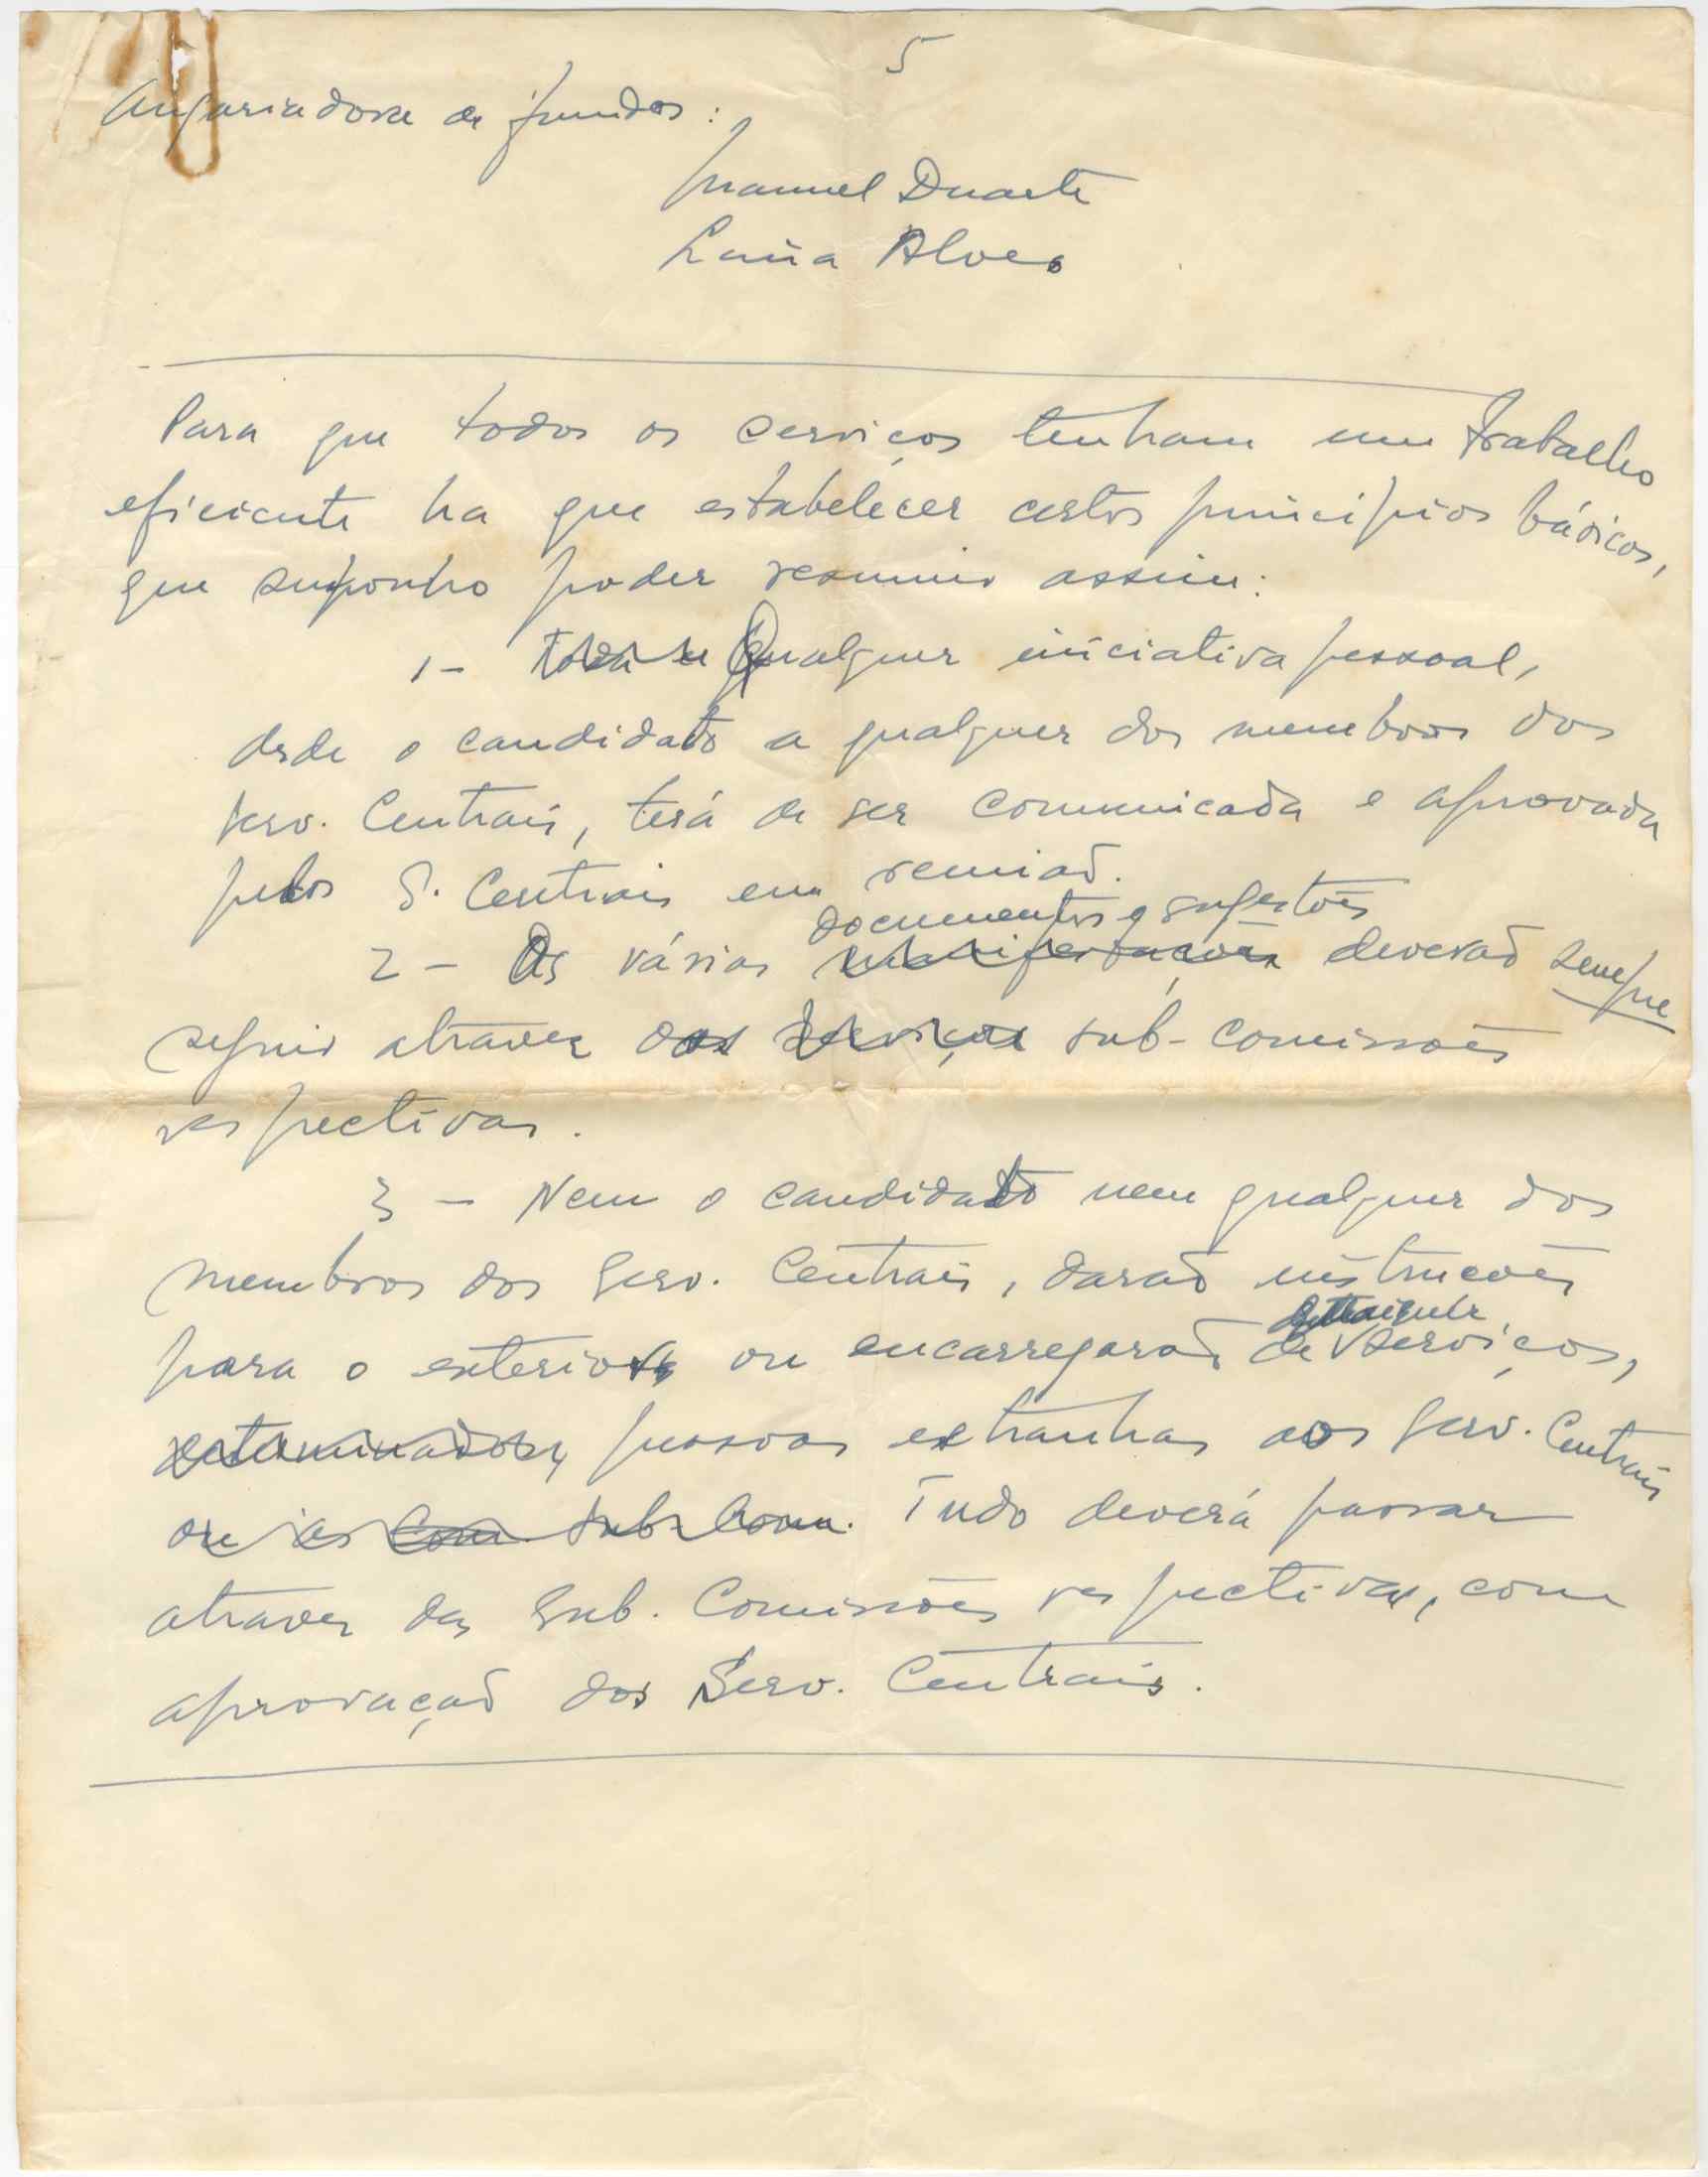 5
Angariadora de fundos:
Manuel Duarte
Laura Alves
Para que todos os serviços tenham um trabalho
eficiente ha que estabelecer certos principios básicos,
que suponho poder resumir assim:
1- Toda e Qualquer iniciativa pessoal,
desde o candidato a qualquer dos membros dos
Serv. Centrais, terá de ser comunicada e aprovada
pelos S. Centrais em reunião.
documentos e sugestões
2 - Os vários manifestações deverão sempre
seguir atravez dos serviços sub-comissões
respectivas.
3 - Nem o candidato nem qualquer dos
membros dos Serv. Centrais, darão instrucões
para o exterior ou encarregarão de serviços,
determinados, pessoas extranhas aos Serv. Centrais
ou ás Com. sub-Com. Tudo deverá passar
atravez das Sub. Comissões respectivas, com
aprovação dos Serv. Centrais.